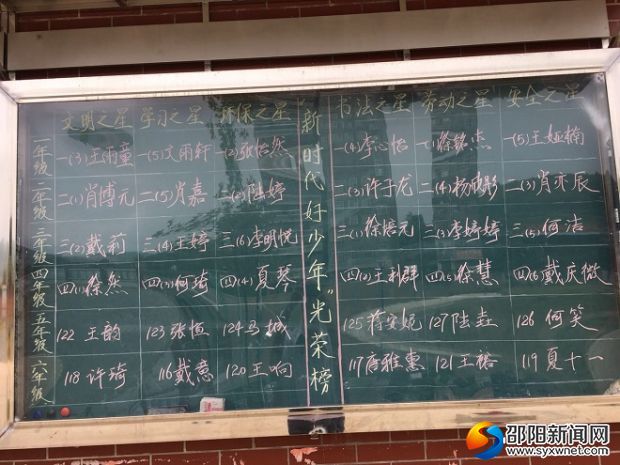 文明之星 学习之星 环保之星 书法之星 劳动之星 安全之星
新时代好少年"光荣榜
一年级 一(3)王雨童 一(5)文雨轩 一(2)张怡然 一(4)李心怡 一(5)王娅楠
二年级 二(1)肖博元 二(5)肖嘉 二(2)陆婷 二(3)许于龙 二(4)杨欣彤 二(3)肖亦辰
三年级 三(2)戴莉 三(4)王婷 三(6)李明悦 三(1)徐培元 三(3)李婷婷 三(5)何洁
四年级 四(1)徐然 四(3)何琦 四(4)夏琴 四(2)王利群 四(5)徐慧 四(6)戴庆微
五年级 122 王韵 123 张恒 124 马城 125 蒋安妮 127 陆垚 126 何笑
六年级 118 许琦 116 戴意 120 王响 117 唐雅惠 121 王裕 119 夏十一
邵阳新闻网
www.syxwnet.com